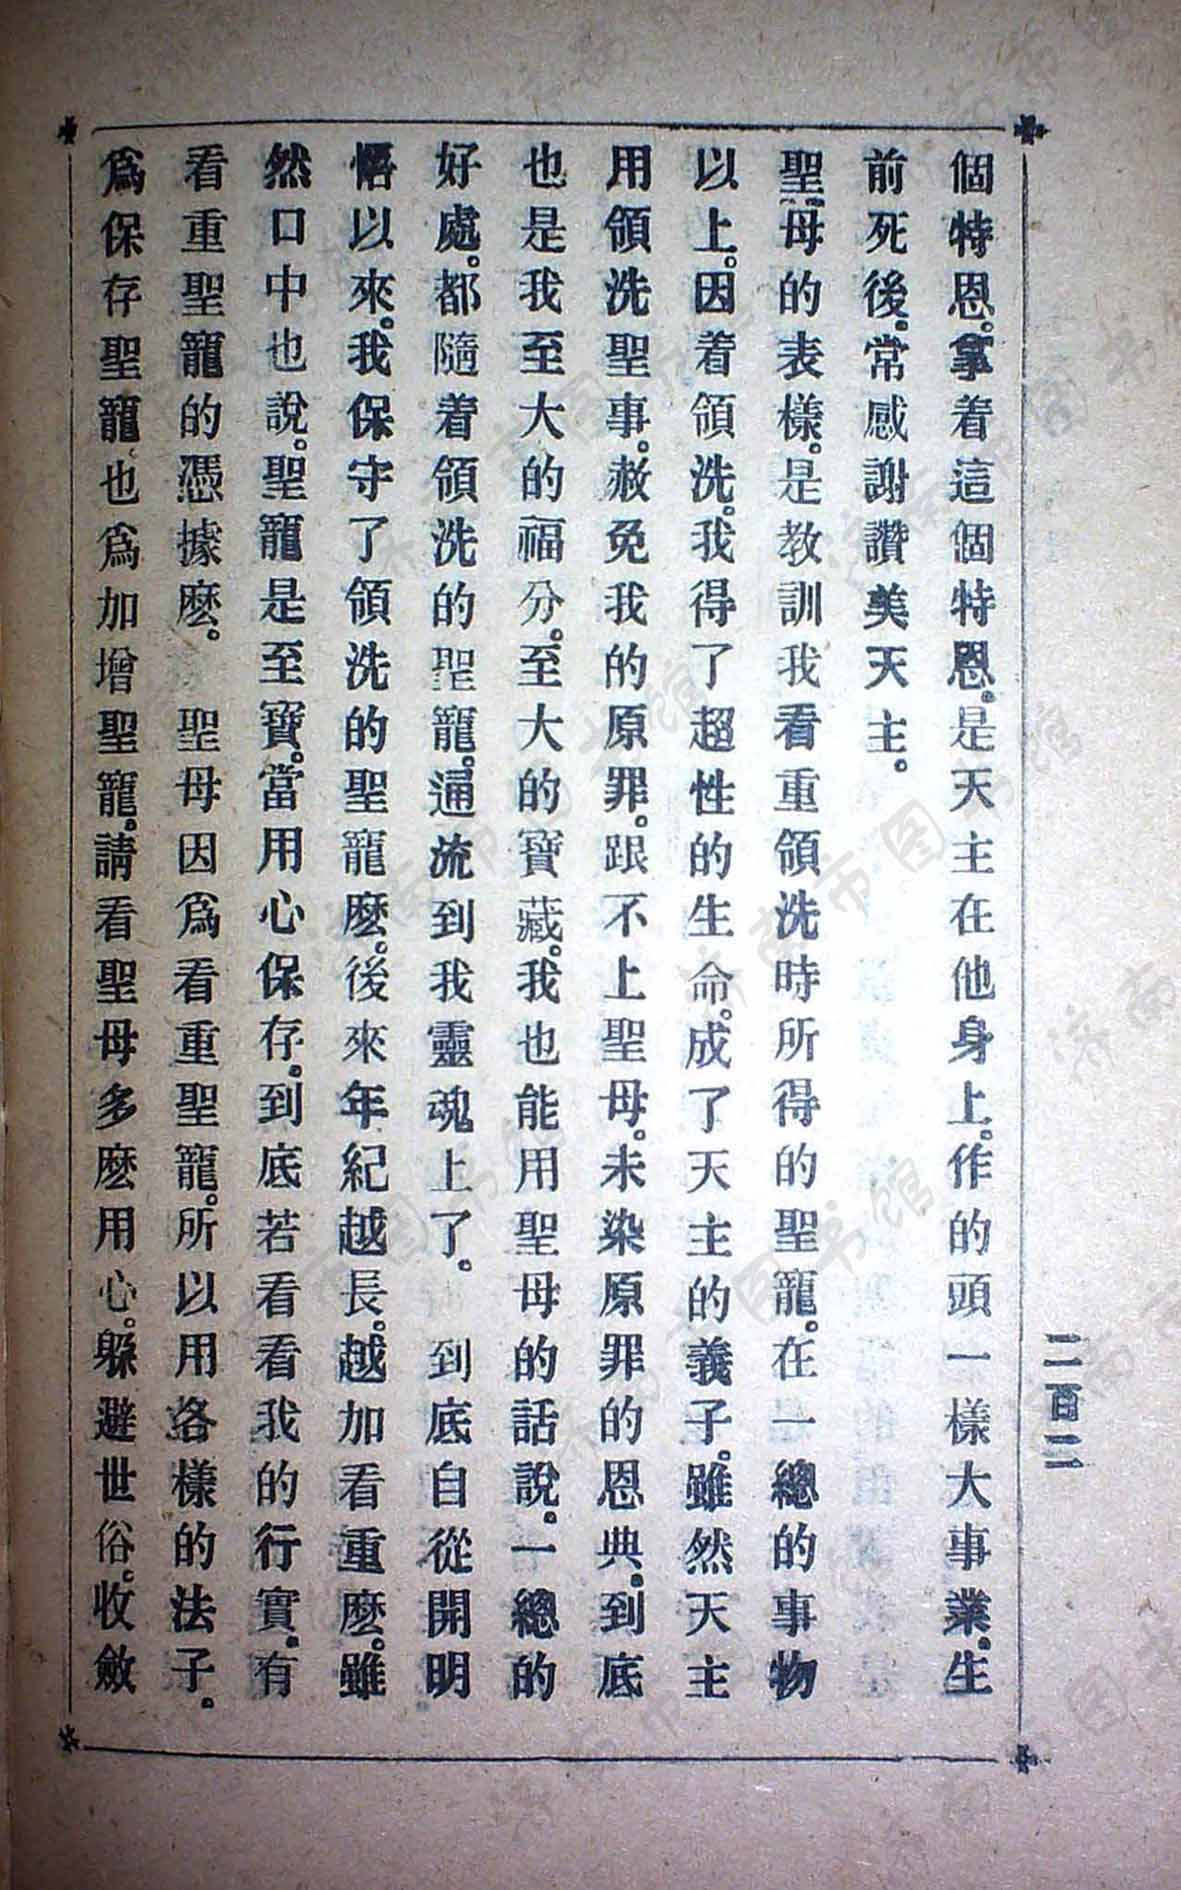 二百二
個特恩。拿着這個特恩。是天主在他身上。作的頭一樣大事業。生
前死後。常感謝讚美天主。
聖母的表樣。是教訓我看重領洗時所得的聖寵。在一總的事物
以上。因着領洗。我得了超性的生命。成了天主的義子。雖然天主
用領洗聖事。赦免我的原罪。跟不上聖母。未染原罪的恩典。到底
也是我至大的福分。至大的寶藏。我也能用聖母的話說。一總的
好處。都隨着領洗的聖寵。通流到我靈魂上了。 到底自從開明
悟以來。我保守了領洗的聖寵麽。後來年紀越長。越加看重麽。雖
然口中也說。聖寵是至寶。當用心保存。到底若看看我的行實。有
看重聖寵的憑據麽。 聖母因爲看重聖寵。所以用各樣的法子。
爲保存聖寵、也爲加增聖寵。請看聖母多麽用心。躲避世俗。收斂
济南市图书馆